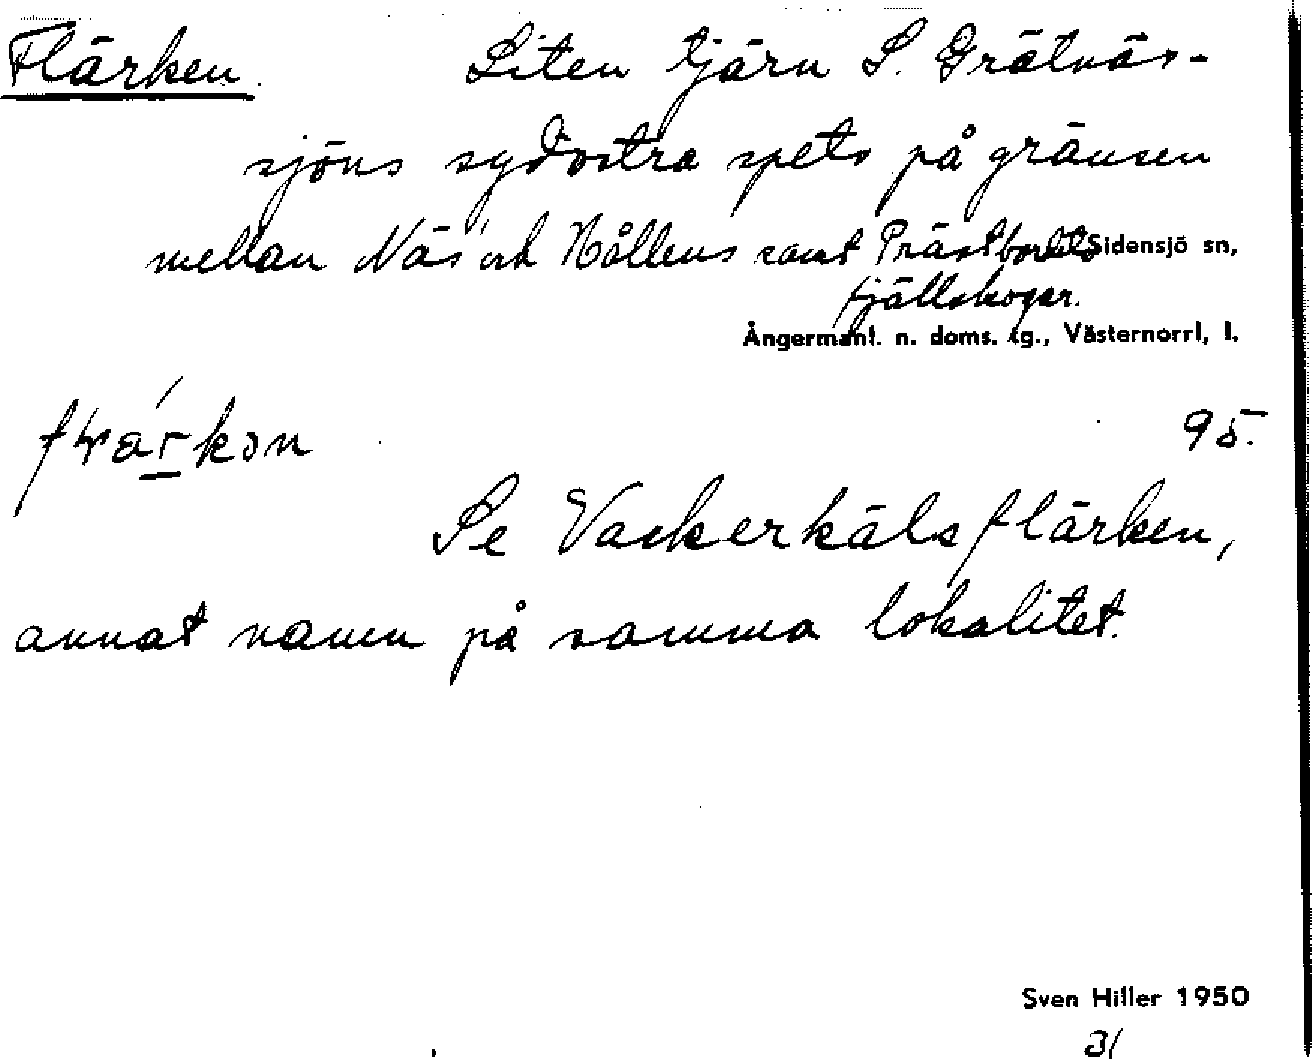 Flärken. Liten tjärn S. Grätnäs-
sjöns sydöstra spets på gränsen
mellan Näs' och Hållens samt Prästbordets Sidensjö sn,
fjällskogar.
Ångermanl. n. doms. tg., Västernorrl, l.
95.
Se Vackerkälsflärken,
annat namn på samma lokalitet.
Sven Hiller 1950